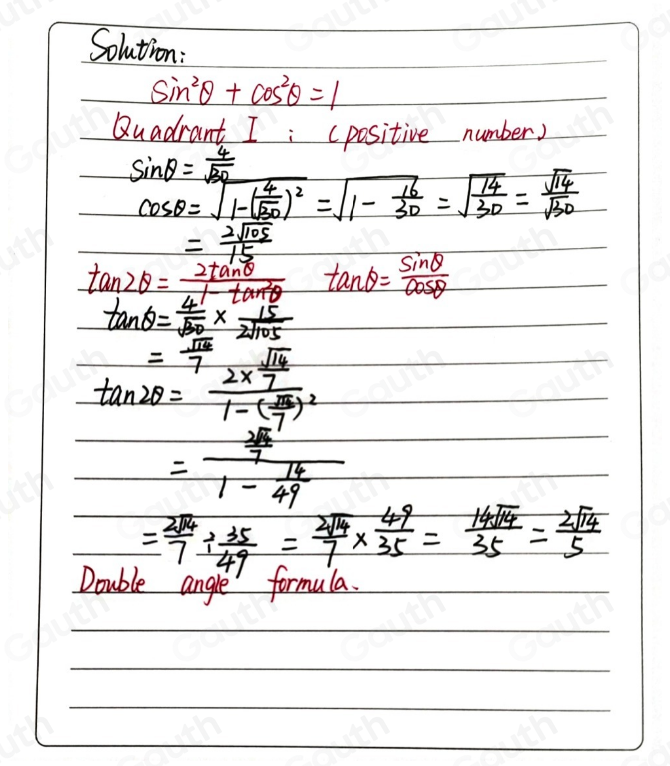 Solution:
sin²θ + cos²θ = 1
Quadrant I : (positive number)
sinθ = 4/√30
cosθ = √(1-(4/√30)²) = √(1 - 16/30) = √(14/30) = √14/√30
= 2√105/15
tan2θ = 2tanθ/(1-tan²θ) tanθ = sinθ/cosθ
tanθ = 4/√30 × 15/2√105
= √14/7
tan2θ = (2×√14/7)/(1-(√14/7)²)
= (2√14/7)/(1 - 14/49)
= 2√14/7 ÷ 35/49 = 2√14/7 × 49/35 = 14√14/35 = 2√14/5
Double angle formula.